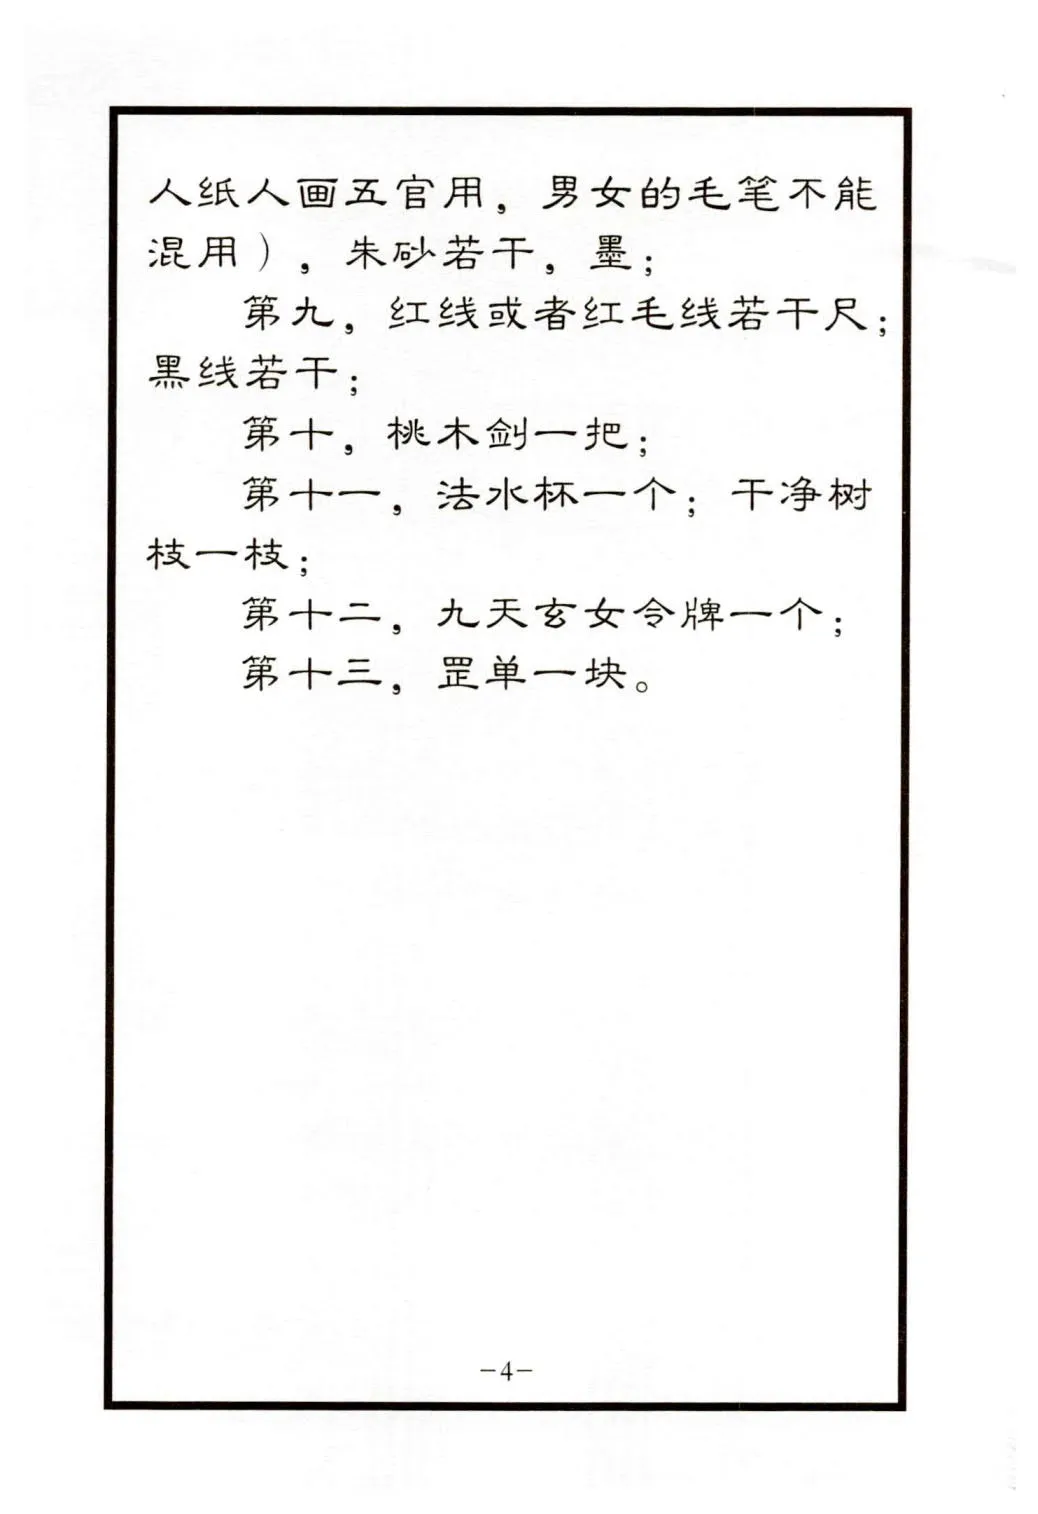 人纸人画五官用，男女的毛笔不能
混用），朱砂若干，墨；
第九，红线或者红毛线若干尺；
黑线若干；
第十，桃木剑一把；
第十一，法水杯一个；干净树
枝一枝；
第十二，九天玄女令牌一个；
第十三，罡单一块。
-4-